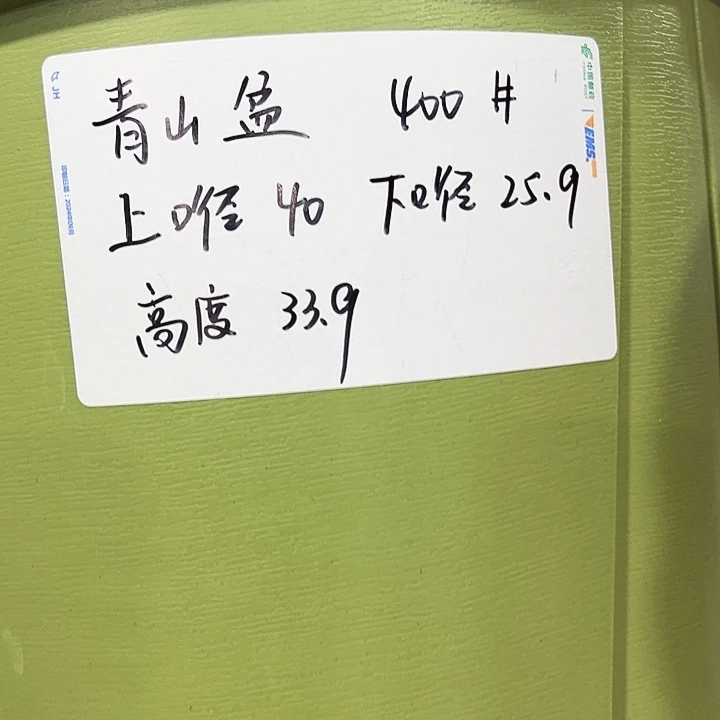 青山盆 400#
上口径 40 下口径 25.9
高度 33.9
中国邮政
CHINA POST
EMS
JH